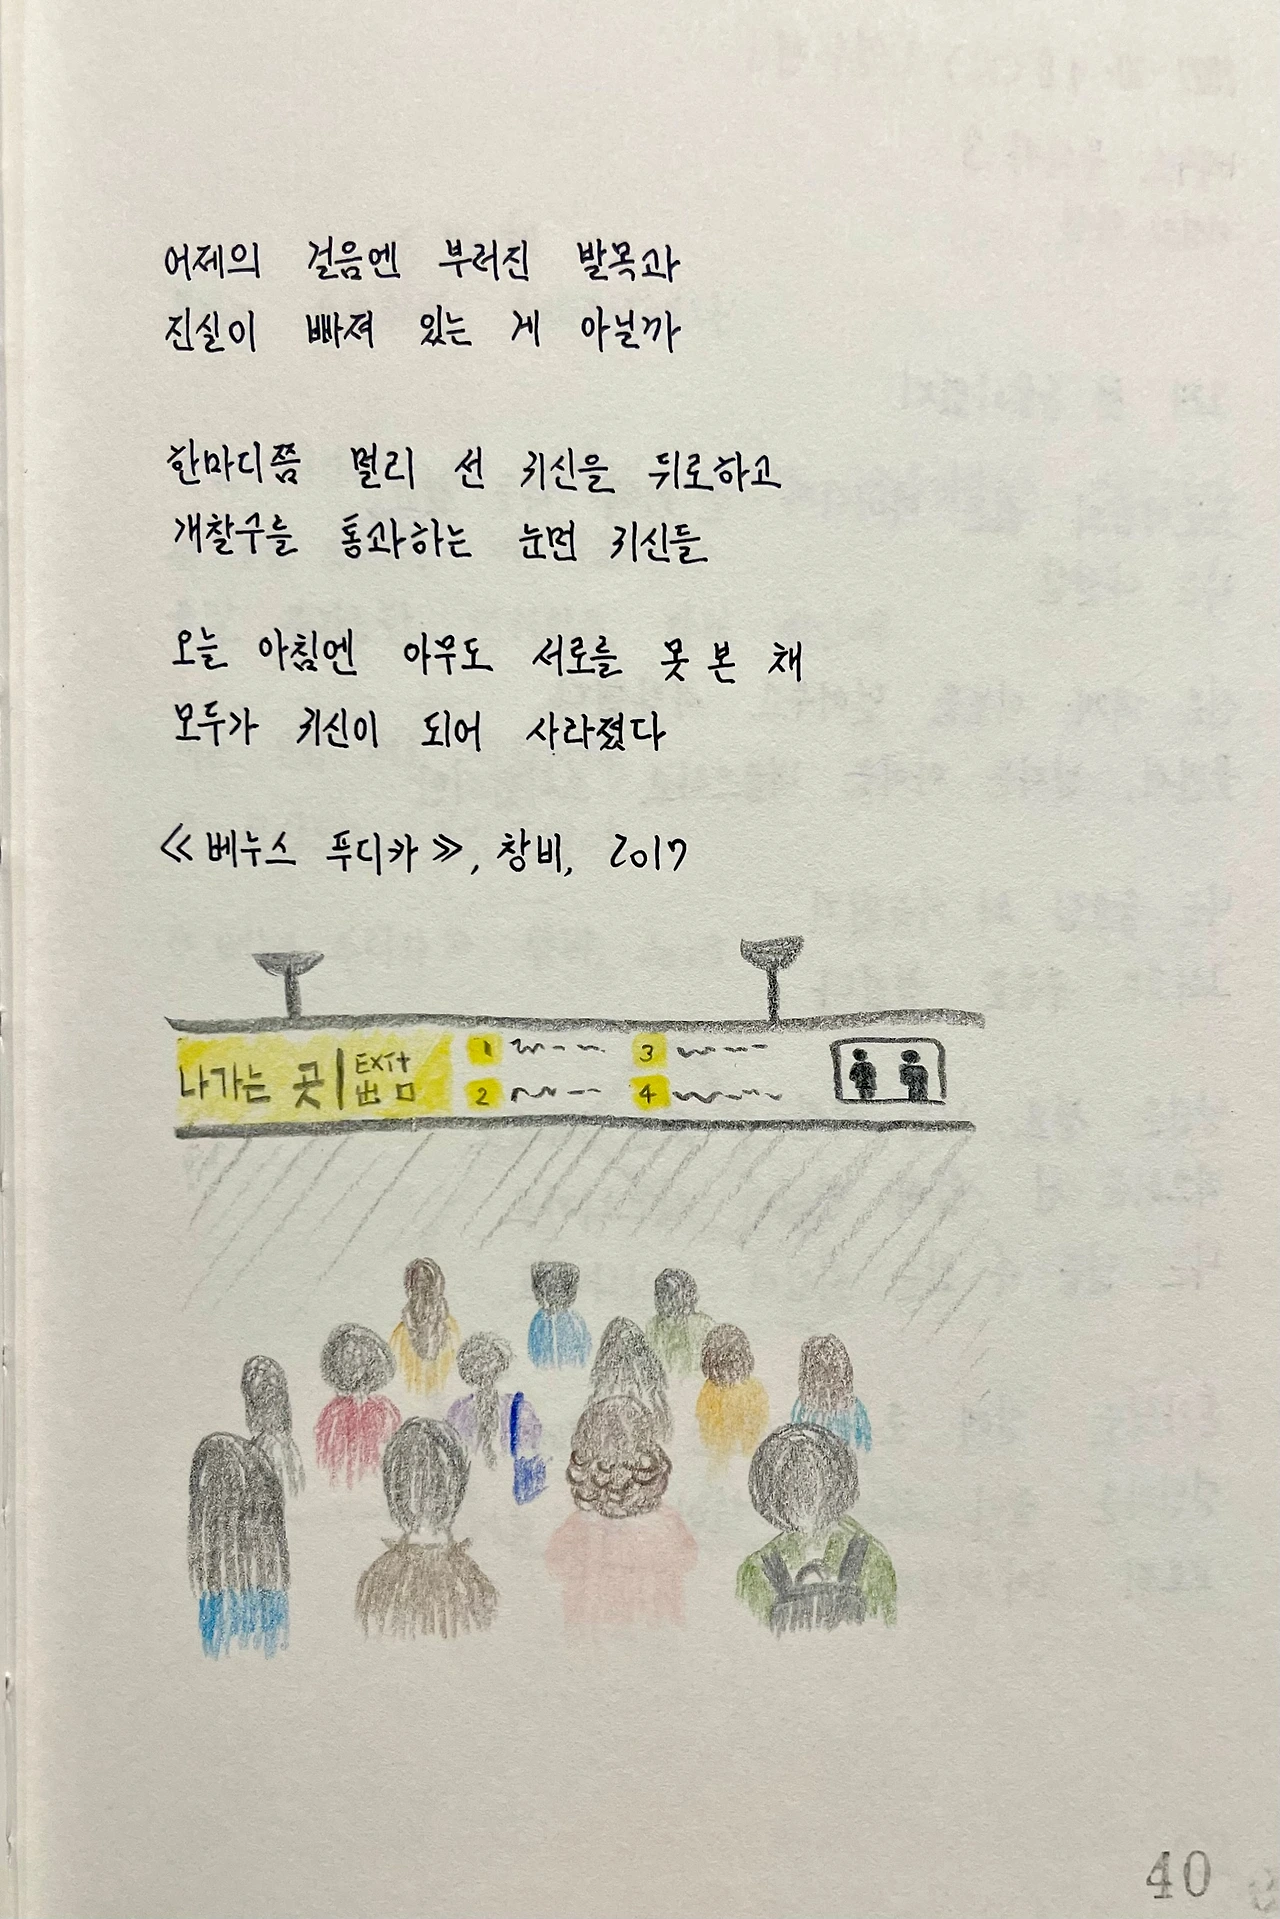 어제의 걸음엔 부러진 발목과
진실이 빠져 있는 게 아닐까
한마디쯤 멀리 선 귀신을 뒤로하고
개찰구를 통과하는 눈먼 귀신들
오늘 아침엔 아무도 서로를 못 본 채
모두가 귀신이 되어 사라졌다
≪베누스 푸디카≫, 창비, 2017
나가는 곳 | EXIT 出口 1 3
2 4
40